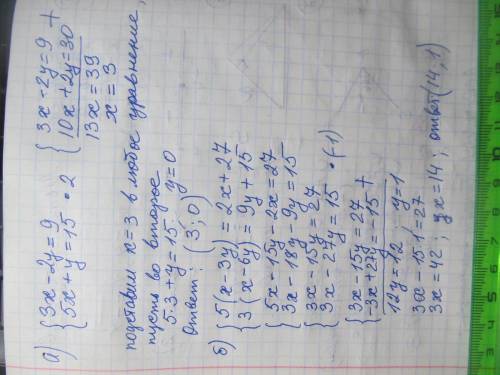 а) {3x-2y=9
5x+y=15 · 2
{3x-2y=9 +
10x+2y=30
13x=39
x=3
подставим x=3 в любое уравнение,
пусть во второе
5·3+y=15, y=0
Ответ: (3; 0)
б) {5(x-3y)=2x+27
3(x-6y)=9y+15
{5x-15y-2x=27
3x-18y-9y=15
{3x-15y=27
3x-27y=15 · (-1)
{3x-15y=27 +
-3x+27y=-15
12y=12, y=1
3x-15·1=27
3x=42; x=14; ответ(14; 1)